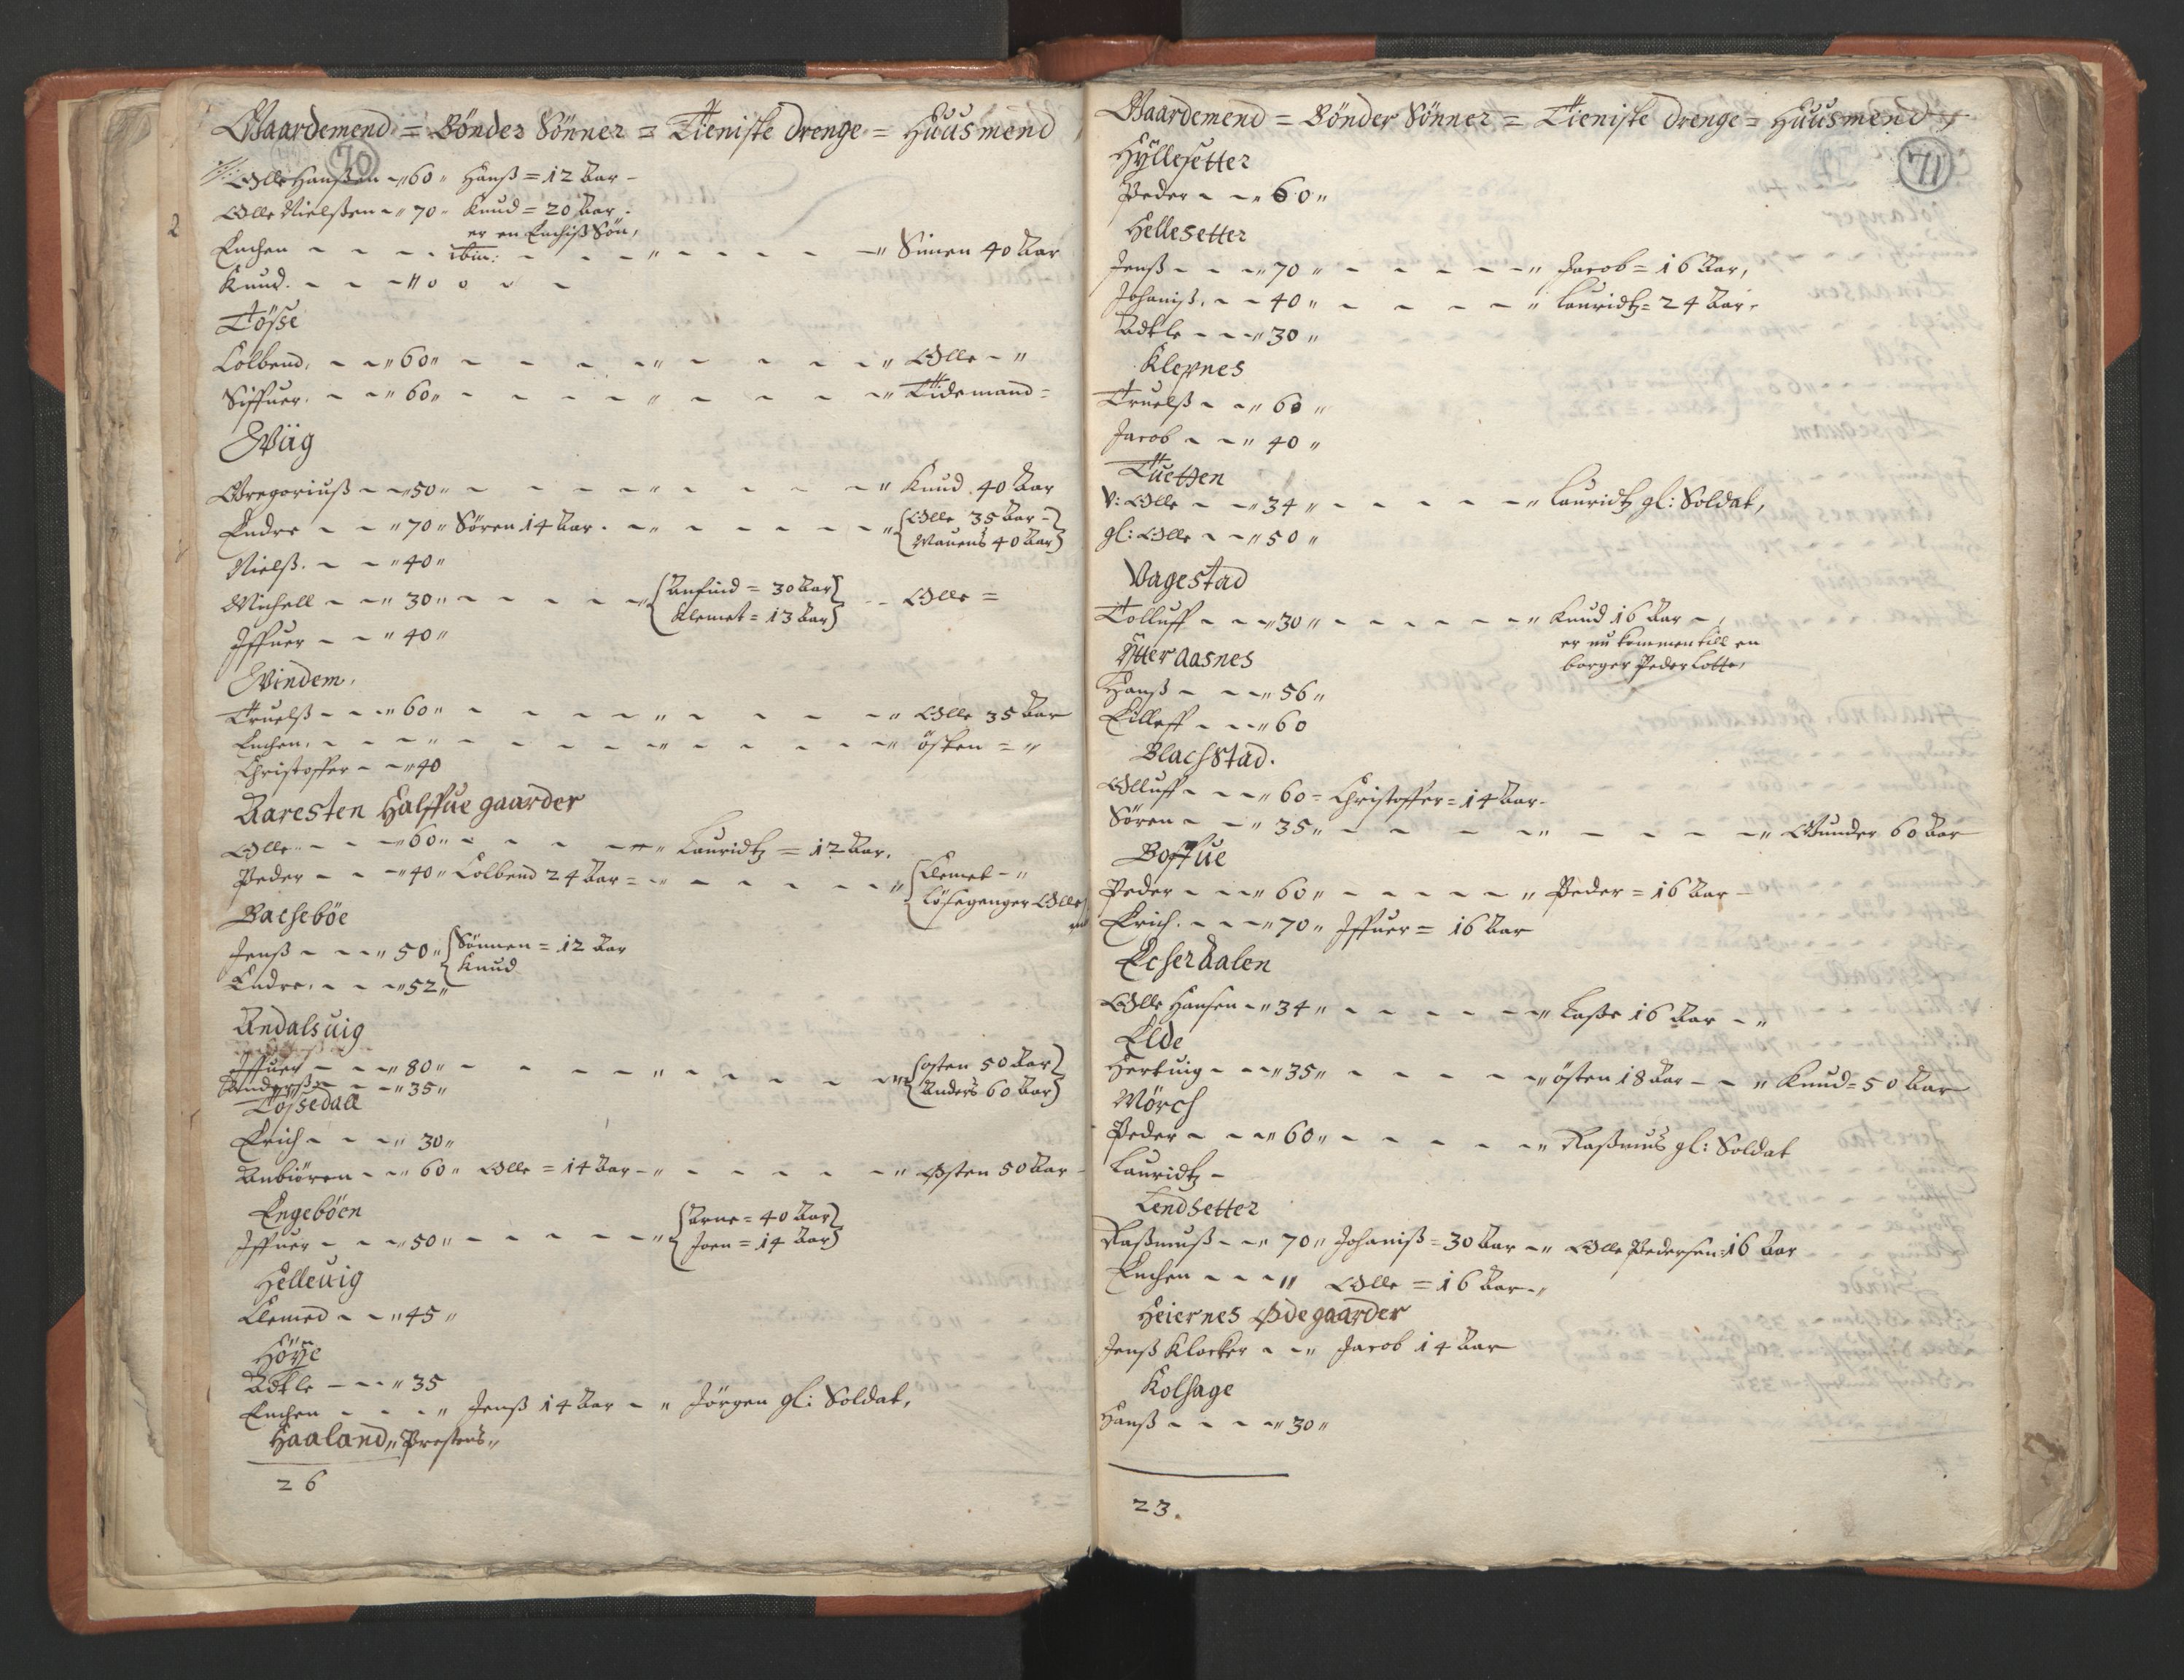 Gaardemend = Bönder Sönner = Tieniste Drenge = Huusmend
70
Olle Hanßen - 60 " Hanß = 12 Aar -
Olle Nielßen - " 70 " Knud = 20 Aar.
2
er en Enchiß Sön,
Enchen - - - - ibm: - - - " - - - - " Simen 40 Aar
Knud. - - - " 0 0
Tösse
Colbend. - - " 60 " - - - - " - - - - " Olle - "
Siffuer. - - " 60 " - - - - " - - - - " Tidemand =
Wiig
Gregoriuß - - " 50 " - - - - " - - - - " Knud 40 Aar
Endre - - " 70 " Sören 14 Aar. - " - - - - - " { Olle 35 Aar - }
{ Mauens 40 Aar }
Nielß. - - " 40 "
Michell - - " 30 " - - - - " { Anfind = 30 Aar } - - Olle =
{ Klemet = 13 Aar }
Iffuer - - " 40 "
Windem.
Truelß - - - " 60 " - - - - " - - - - " Olle 35 Aar
Enchen. - - - - " - - - - - " - - - - " östen = "
Christoffer - - " 40
Aaresten Halffue gaarder
Olle - - - " 60 " - - - - " Lauridtz = 12 Aar.
Peder - - - " 40 " Colbend 24 Aar = - " - - - - - " { Clemet - "
{ Lösegenger Olle
Bachebőe
Jenß - - - " 50 " { Sönnen = 12 Aar
{ Knud
Endre. - - - " 52 "
Andalsuig
Iffuer - - - " 80 " - - - - " - - - - - " { osten 50 Aar }
Anderß - - - " 35 " { Anders 60 Aar }
Tössedall
Erich - - - " 30 "
Anbiören - - " 60 " Olle = 14 Aar - " - - - - - " Östen 50 Aar -
Engebően
Iffuer - - - " 50 " - - - - - " { Arne = 40 Aar }
{ Joen = 14 Aar }
Helleuig
Clemed - - " 45 "
Höye
Adtle - - - " 35
Enchen - - - - " Jenß 14 Aar - " Jörgen gl: Soldat,
Haaland " Prestens "
26
Gaardemend = Bönder Sönner = Tieniste Drenge = Huusmend
71
Hyllesetter
Peder - - " 60 "
Hellesetter
Jenß - - - " 70 " - - - - - " Jacob = 16 Aar,
Johaniß. - - 40 " - - - - - " Lauridtz = 24 Aar,
Adtle - - - " 30 "
Klepnes
Truelß - - " 60 "
Jacob - - " 40 "
Tuetten
V: Olle - - " 34 " - - - - - " Lauridtz gl: Soldat,
gl: Olle - - " 50 "
Vagestad
Tolluff - - - " 30 " - - - - - - " Knud 16 Aar -,
er nu kommen till en
borger Peder Lotte,
Ytter Aasnes
Hanß - - - " 56 "
Eilleff - - - " 60
Blachstad.
Olluff - - - " 60 = Christoffer = 14 Aar -
Sören - - " 35 " - - - - " - - - - " Gunder 60 Aar
Boffue
Peder - - - " 60 " - - - - - " Peder = 16 Aar -
Erich. - - - " 70 " Iffuer = 16 Aar
Echerdalen
Olle Hansen - " 34 " - - - - - - " Laße 16 Aar - "
Elde
Hertuig - - - " 35 " - - - - - " östen 18 Aar - - " Knud = 50 Aar
Mörch
Peder - - - " 60 " - - - - - " Raßmus gl: Soldat
Lauridtz -
Lendsetter
Raßmuß - - " 70 " Johaniß = 30 Aar - " Olle Pedersen = 16 Aar
Enchen - - - " Olle = 16 Aar - "
Heiernes Ødegaarder
Jenß Klocker - - " Jacob 14 Aar
Kolhage
Hanß - - - - " 30 "
23.